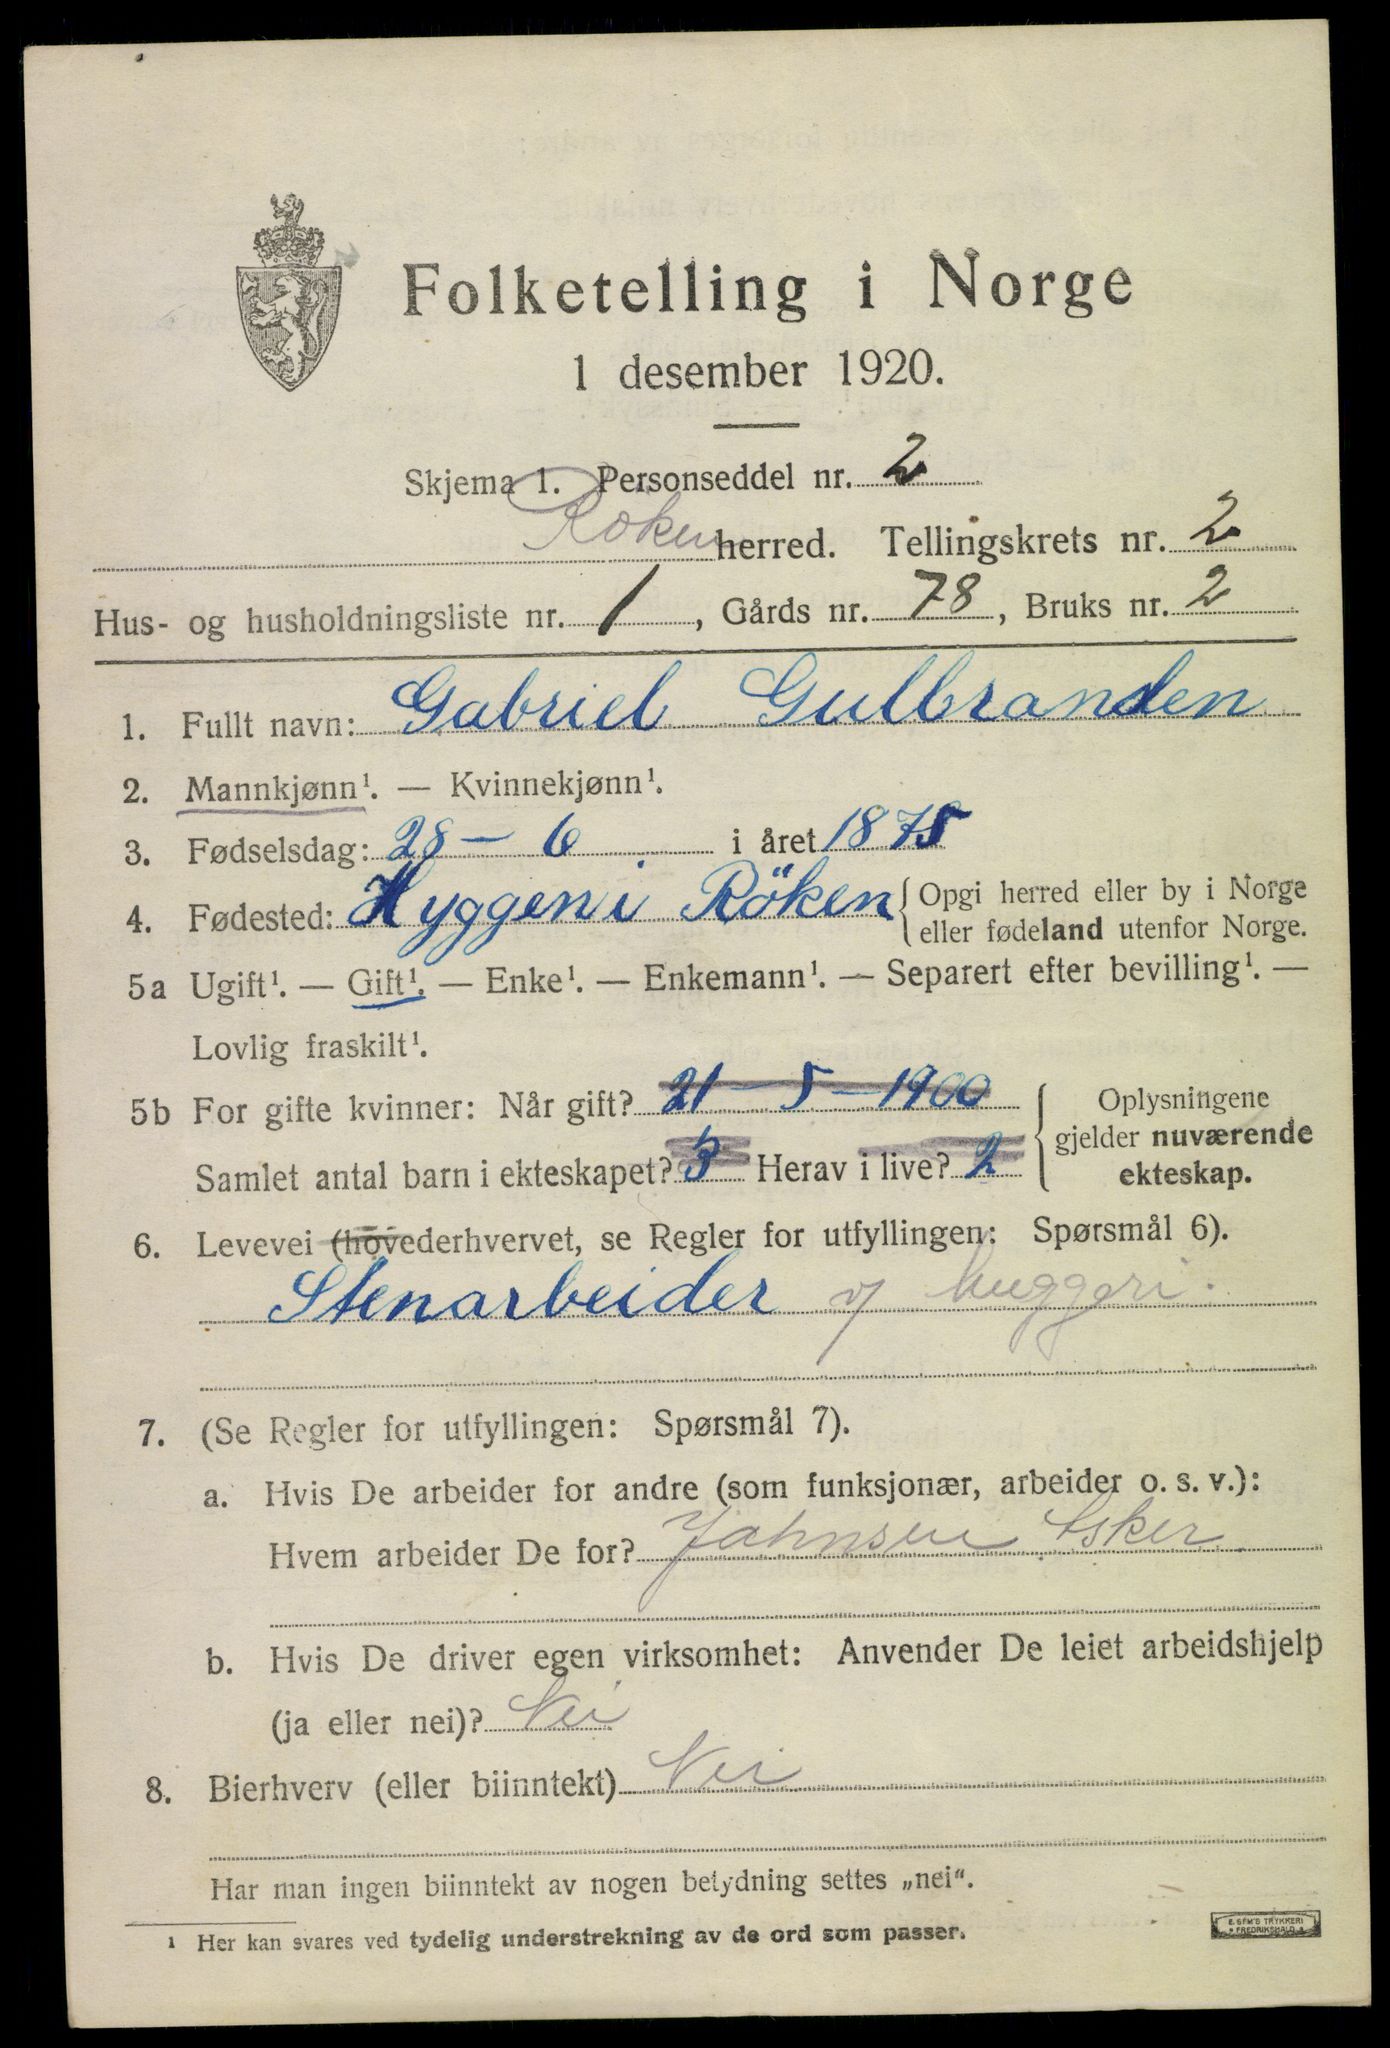 Folketelling i Norge
1 desember 1920.
Skjema 1. Personseddel nr. 2
Röken herred. Tellingskrets nr. 2
Hus- og husholdningsliste nr. 1, Gårds nr. 78, Bruks nr. 2
1. Fullt navn: Gabriel Gulbransen
2. Mannkjønn¹. — Kvinnekjønn¹.
3. Fødselsdag: 28 – 6 i året 1875
4. Fødested: Hyggen i Röken { Opgi herred eller by i Norge
eller fødeland utenfor Norge.
5a Ugift¹. — Gift¹. — Enke¹. — Enkemann¹. — Separert efter bevilling¹. —
Lovlig fraskilt¹.
5b For gifte kvinner: Når gift? 21 – 5 – 1900
Samlet antal barn i ekteskapet? 3 Herav i live? 2
Oplysningene
gjelder nuværende
ekteskap.
6. Levevei (hovederhvervet, se Regler for utfyllingen: Spørsmål 6).
Stenarbeider v/ huggeri.
7. (Se Regler for utfyllingen: Spørsmål 7).
a. Hvis De arbeider for andre (som funksjonær, arbeider o. s. v.):
Hvem arbeider De for? Johnsen Asker
b. Hvis De driver egen virksomhet: Anvender De leiet arbeidshjelp
(ja eller nei)? Nei
8. Bierhverv (eller biinntekt) Nei
Har man ingen biinntekt av nogen betydning settes „nei“.
¹ Her kan svares ved tydelig understrekning av de ord som passer.
E. SEM'S TRYKKERI
FREDRIKSHALD